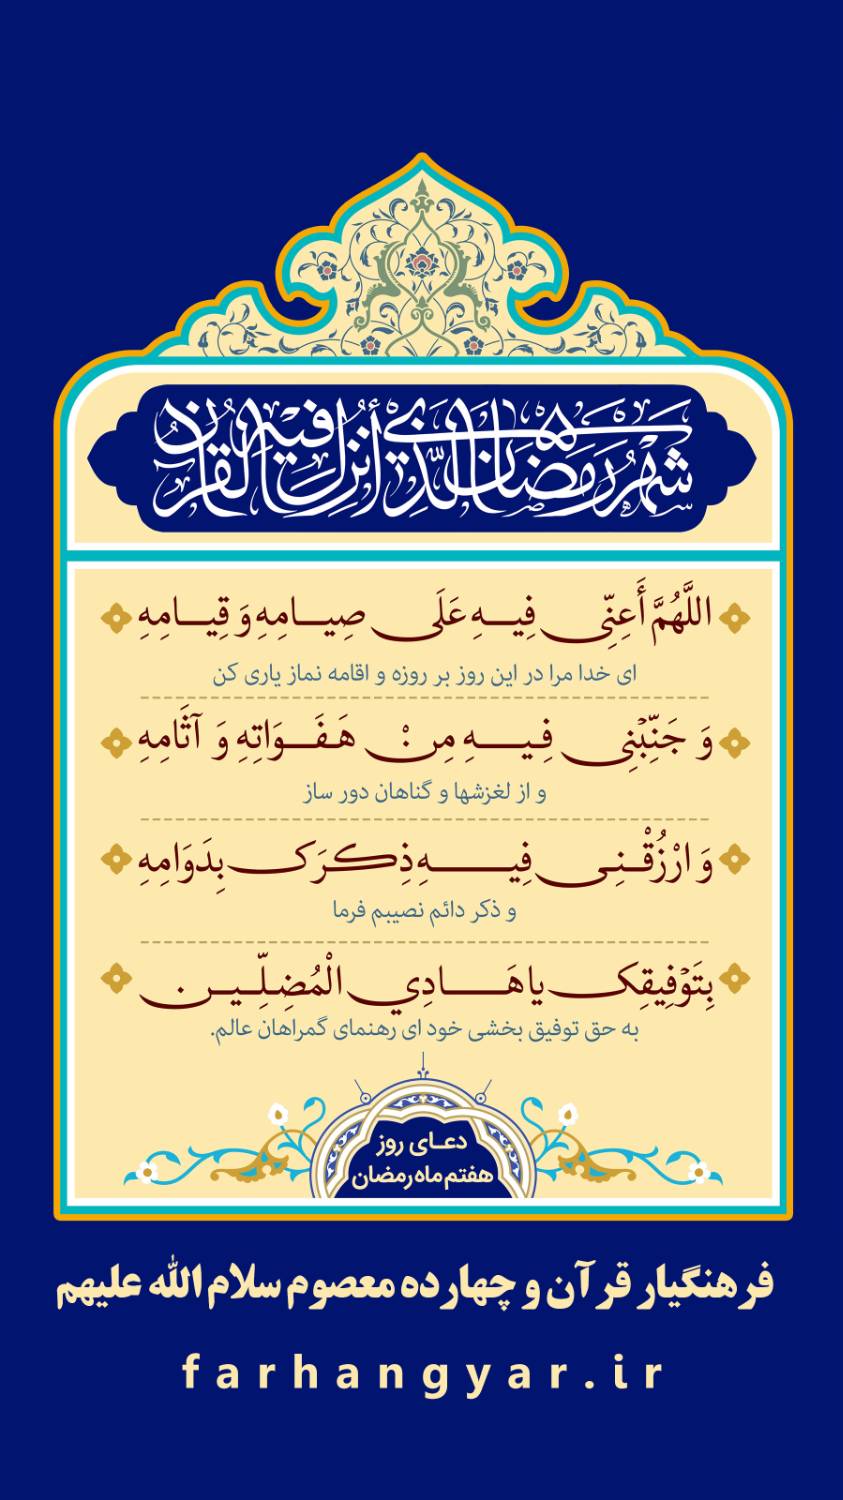 شَهْرُ رَمَضَانَ الَّذِي أُنْزِلَ فِيهِ الْقُرْآنُ
اللَّهُمَّ أَعِنِّي فِيهِ عَلَى صِيَامِهِ وَ قِيَامِهِ
ای خدا مرا در این روز بر روزه و اقامه نماز یاری کن
وَ جَنِّبْنِي فِيهِ مِنْ هَفَوَاتِهِ وَ آثَامِهِ
و از لغزشها و گناهان دور ساز
وَ ارْزُقْنِي فِيهِ ذِكْرَكَ بِدَوَامِهِ
و ذکر دائم نصیبم فرما
بِتَوْفِيقِكَ يا هَادِيَ الْمُضِلِّينَ
به حق توفیق بخشی خود ای رهنمای گمراهان عالم.
دعای روز
هفتم ماه رمضان
فرهنگیار قرآن و چهارده معصوم سلام الله علیهم
farhangyar.ir